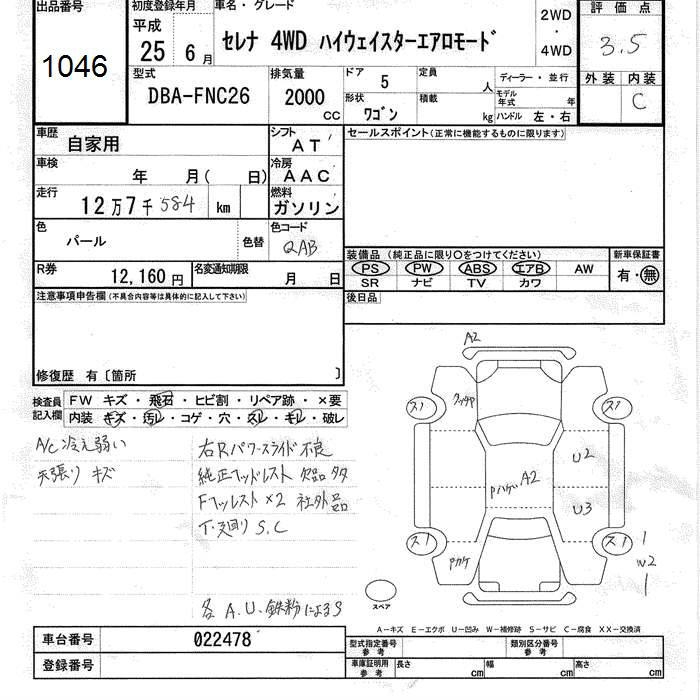 出品番号
1046
初度登録年月
平成
25 6月
車名・グレード
セレナ 4WD ハイウェイスターエアロモード
2WD
・
4WD
評価点
3.5
外装 内装
C
型式
DBA-FNC26
排気量
2000
CC
ドア 5
定員 人
形状 ワゴン
積載 kg
ディーラー・並行
モデル年式 年
ハンドル 左・右
車歴
自家用
シフト
AT
車検
年 月( 日)
冷房
AAC
走行
12万7千584 km
燃料
ガソリン
色
パール
色替
色コード
QAB
R券
12,160円
名変通知期限
月 日
セールスポイント(正常に機能するものに限ります)
装備品(純正品に限り○をつけてください)
PS PW ABS エアB AW
SR ナビ TV カワ
新車保証書
有・無
後日品
注意事項申告欄(不具合内容等は具体的に記入して下さい)
修復歴 有〔箇所 〕
検査員
記入欄
FW キズ・飛石・ヒビ割・リペア跡・×要
内装・キズ・汚レ・コゲ・穴・スレ・キレ・破レ
A/C 冷え弱い
天張り キズ
右Rパワースライド不良
純正ヘッドレスト 欠品 多
Fヘッレスト×2 社外品
下廻り S.C
各 A.U.鉄粉による
A2
ス1
ス1
U2
A2
U3
ス1
ス1
W2
スペア
A−キズ E−エクボ U−凹み W−補修跡 S−サビ C−腐食 XX−交換済
車台番号
022478
登録番号
型式指定番号
参考
類別区分番号
参考
車庫証明用
参考
長さ cm
幅 cm
高さ cm